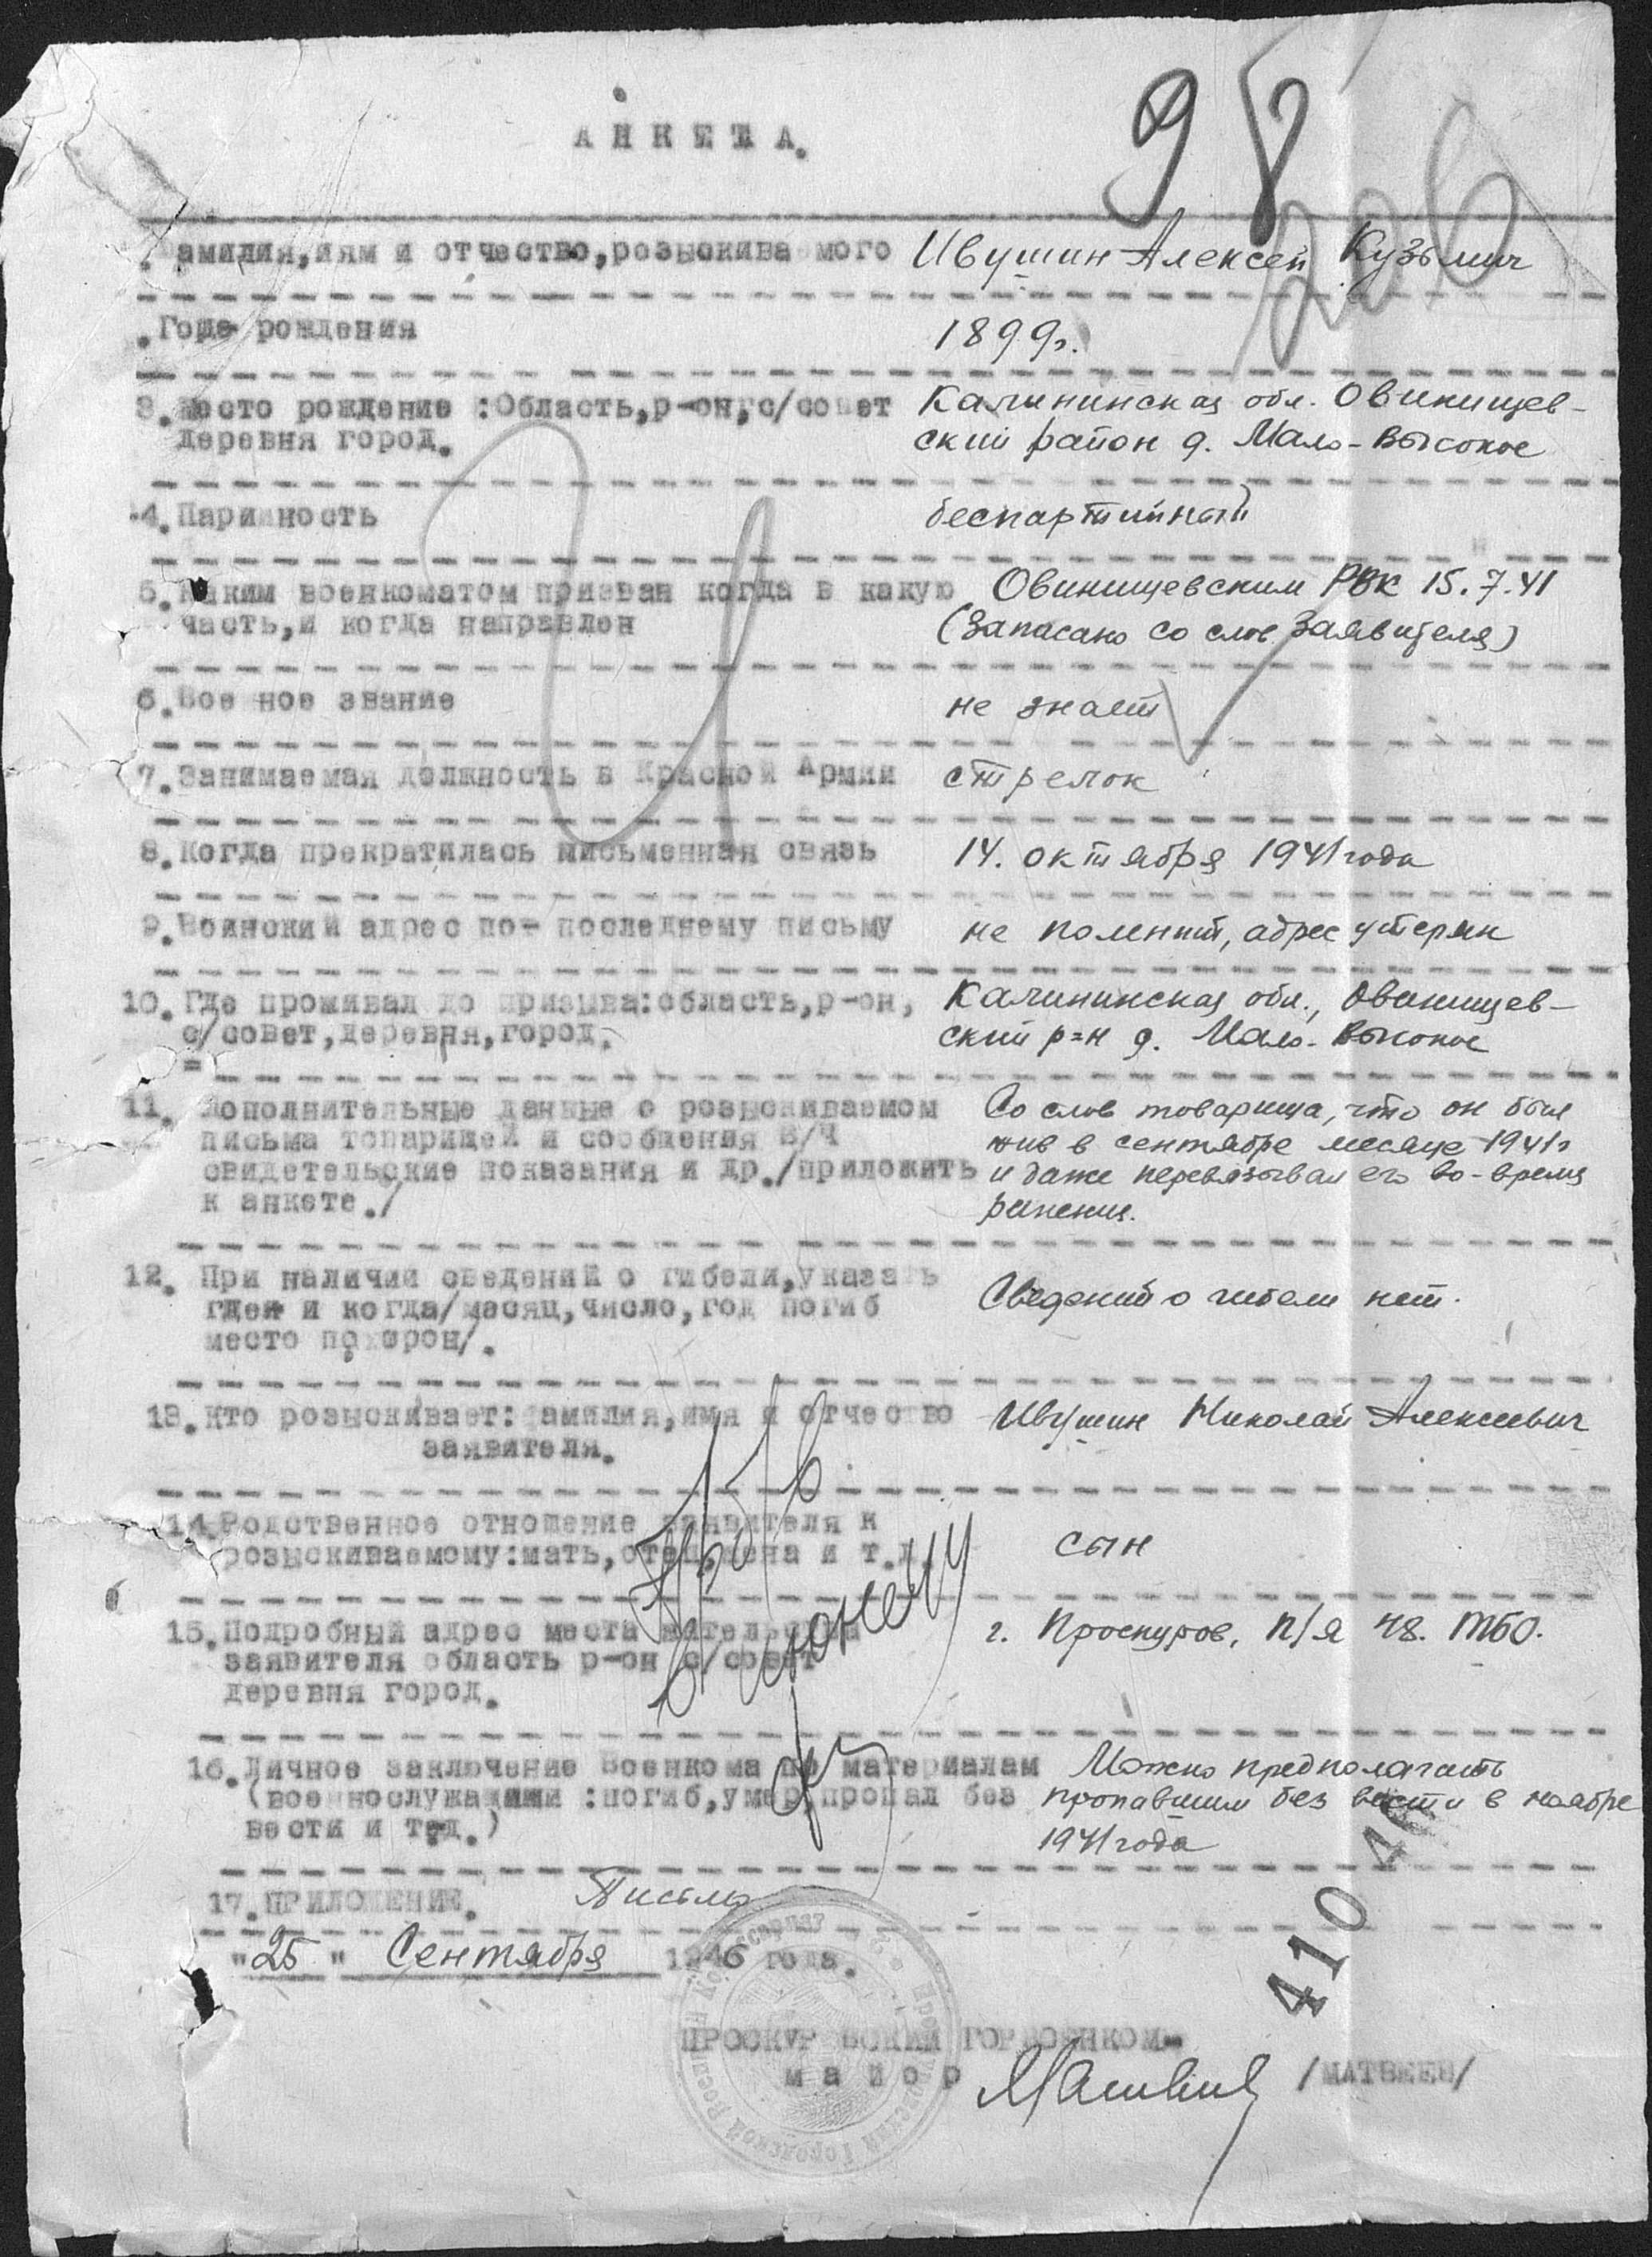 98
206
АНКЕТА.
. амилия,иям и отчество,розыскива мого Ивушин Алексей Кузьмич
.Годе рождения 1899г.
3.Место рождение :Область,р-он,с/совет Калининская обл. Овинищев-
деревня город. ский район д. Мало-Высокое
4.Париность беспартийный
5.Каким военкоматом призван когда в какую Овинищевским РВК 15.7.41
часть,и когда направлен (Записано со слов Заявителя)
6.Вое ное звание не знает
7.Занимаемая должность в Красной Армии стрелок
8.Когда прекратилась письменная связь 14. октября 1941 года
9.Воинский адрес по- последнему письму не помнит, адрес утерян
10.Где проживал до призыва:область,р-он, Калининская обл., Овинищев-
с/совет,деревня,город. ский р=н д. Мало-Высокое
11. Дополнительные данные о розыскиваемом Со слов товарища, что он был
письма товарищей и сообщения В/Ч жив в сентябре месяце 1941г
свидетельские показания и др./приложить и даже перевязывал его во-время
к анкете./ ранения.
12. При наличии сведений о гибели,указать Сведений о гибели нет.
гдея и когда/месяц,число,год погиб
место похорон/.
13.Кто розыскивает: амилия,имя и отчество Ивушин Николай Алексеевич
заявителя.
14.Родственное отношение заявителя к
розыскиваемому:мать,отец,жена и т.д. сын
15.Подробный адрес места жительства г. Проскуров, п/я 48. ТБО.
заявителя область р-он с/совет
деревня город.
16.Личное заключение Военкома по материалам Можно предполагать
(военнослужащими :погиб,умер,пропал без пропавшим без вести в ноябре
вести и тед.) 1941 года
17.ПРИЛОЖЕНИЕ. Письмо
"25" Сентября 1946 года.
410
ПРОСКУРОВСКИЙ ГОРВОЕНКОМ-
майор /МАТВЕЕВ/